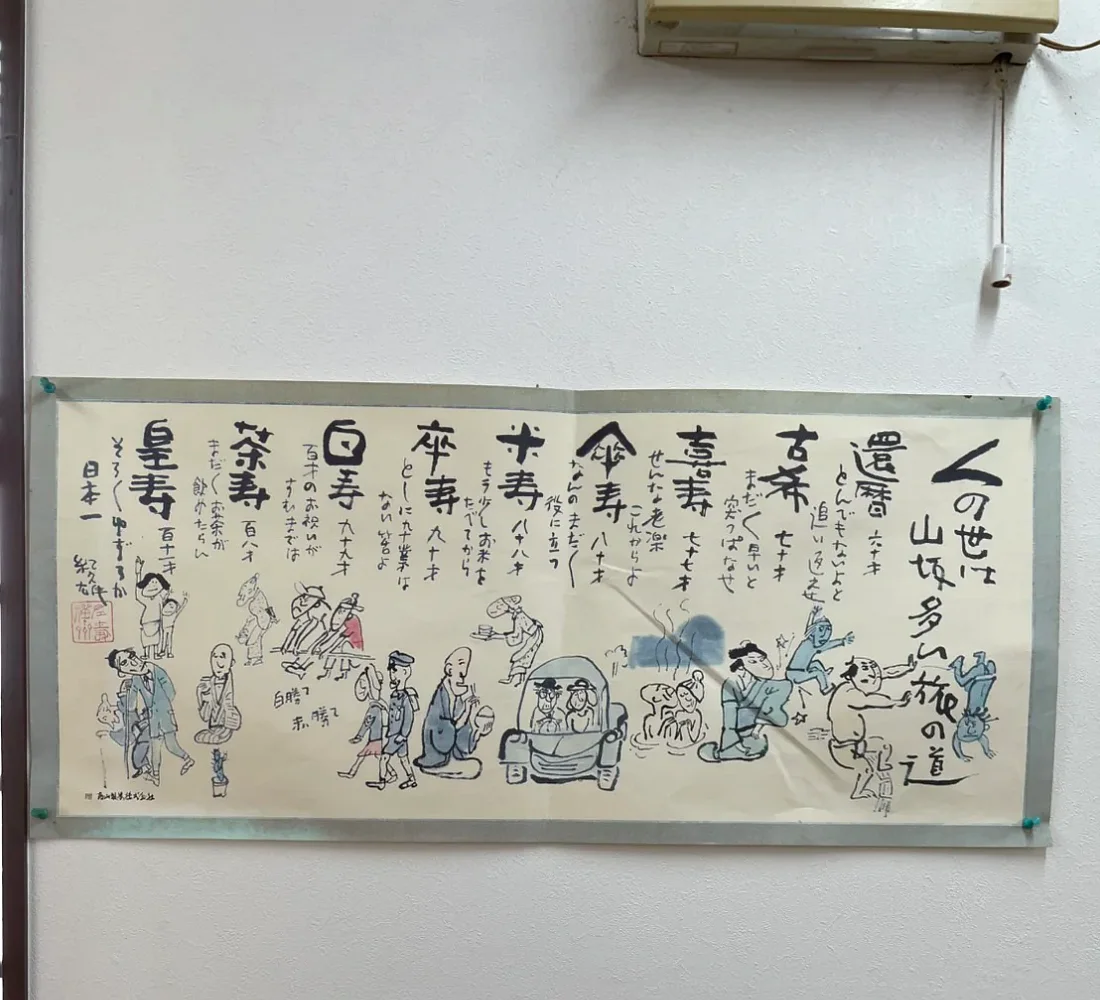 人の世は
山坂多い旅の道
還暦 六十才
とんでもないよと
追い返せ
古希 七十才
まだ〱早いと
突っぱなせ
喜寿 七十七才
せくな老楽
これからよ
傘寿 八十才
なんのまだ〱
役に立つ
米寿 八十八才
もう少しお米を
たべてから
卒寿 九十才
としに卆業は
ない筈よ
白寿 九十九才
百才のお祝いが
すむまでは
白勝て
赤勝て
茶寿 百八才
まだ〱お茶が
飲みたらん
皇寿 百十一才
そろ〱ゆずろうか
日本一